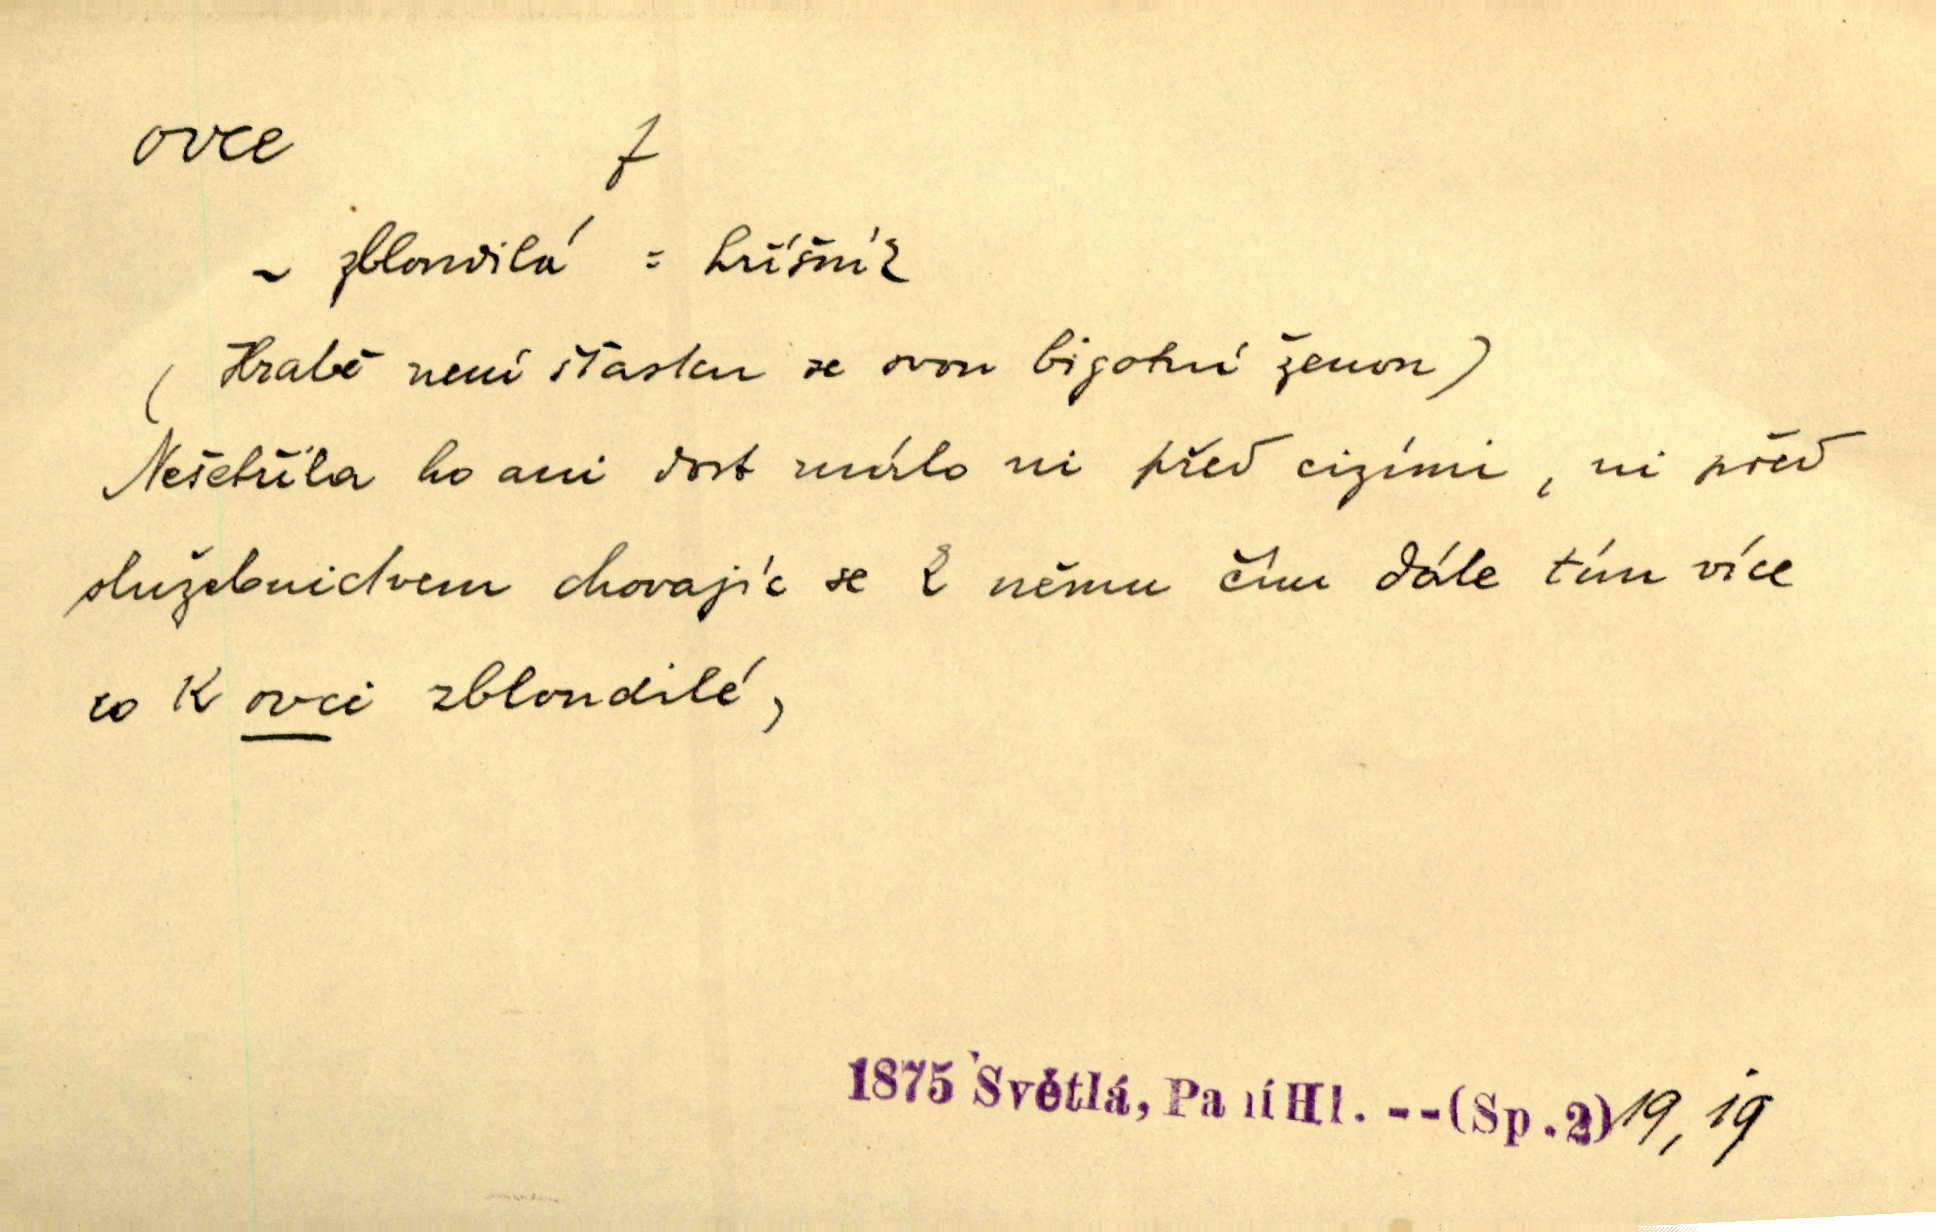 ovce f
~ zbloudilá = hříšník
( Hrabě není šťasten se svou bigotní ženou )
Nešetřila ho ani dost málo ni před cizími, ni před
služebnictvem chovajíc se k němu čím dále tím více
co k ovci zbloudilé,
1875 Světlá, Paní Hl. -- (Sp. 2) 19, ig